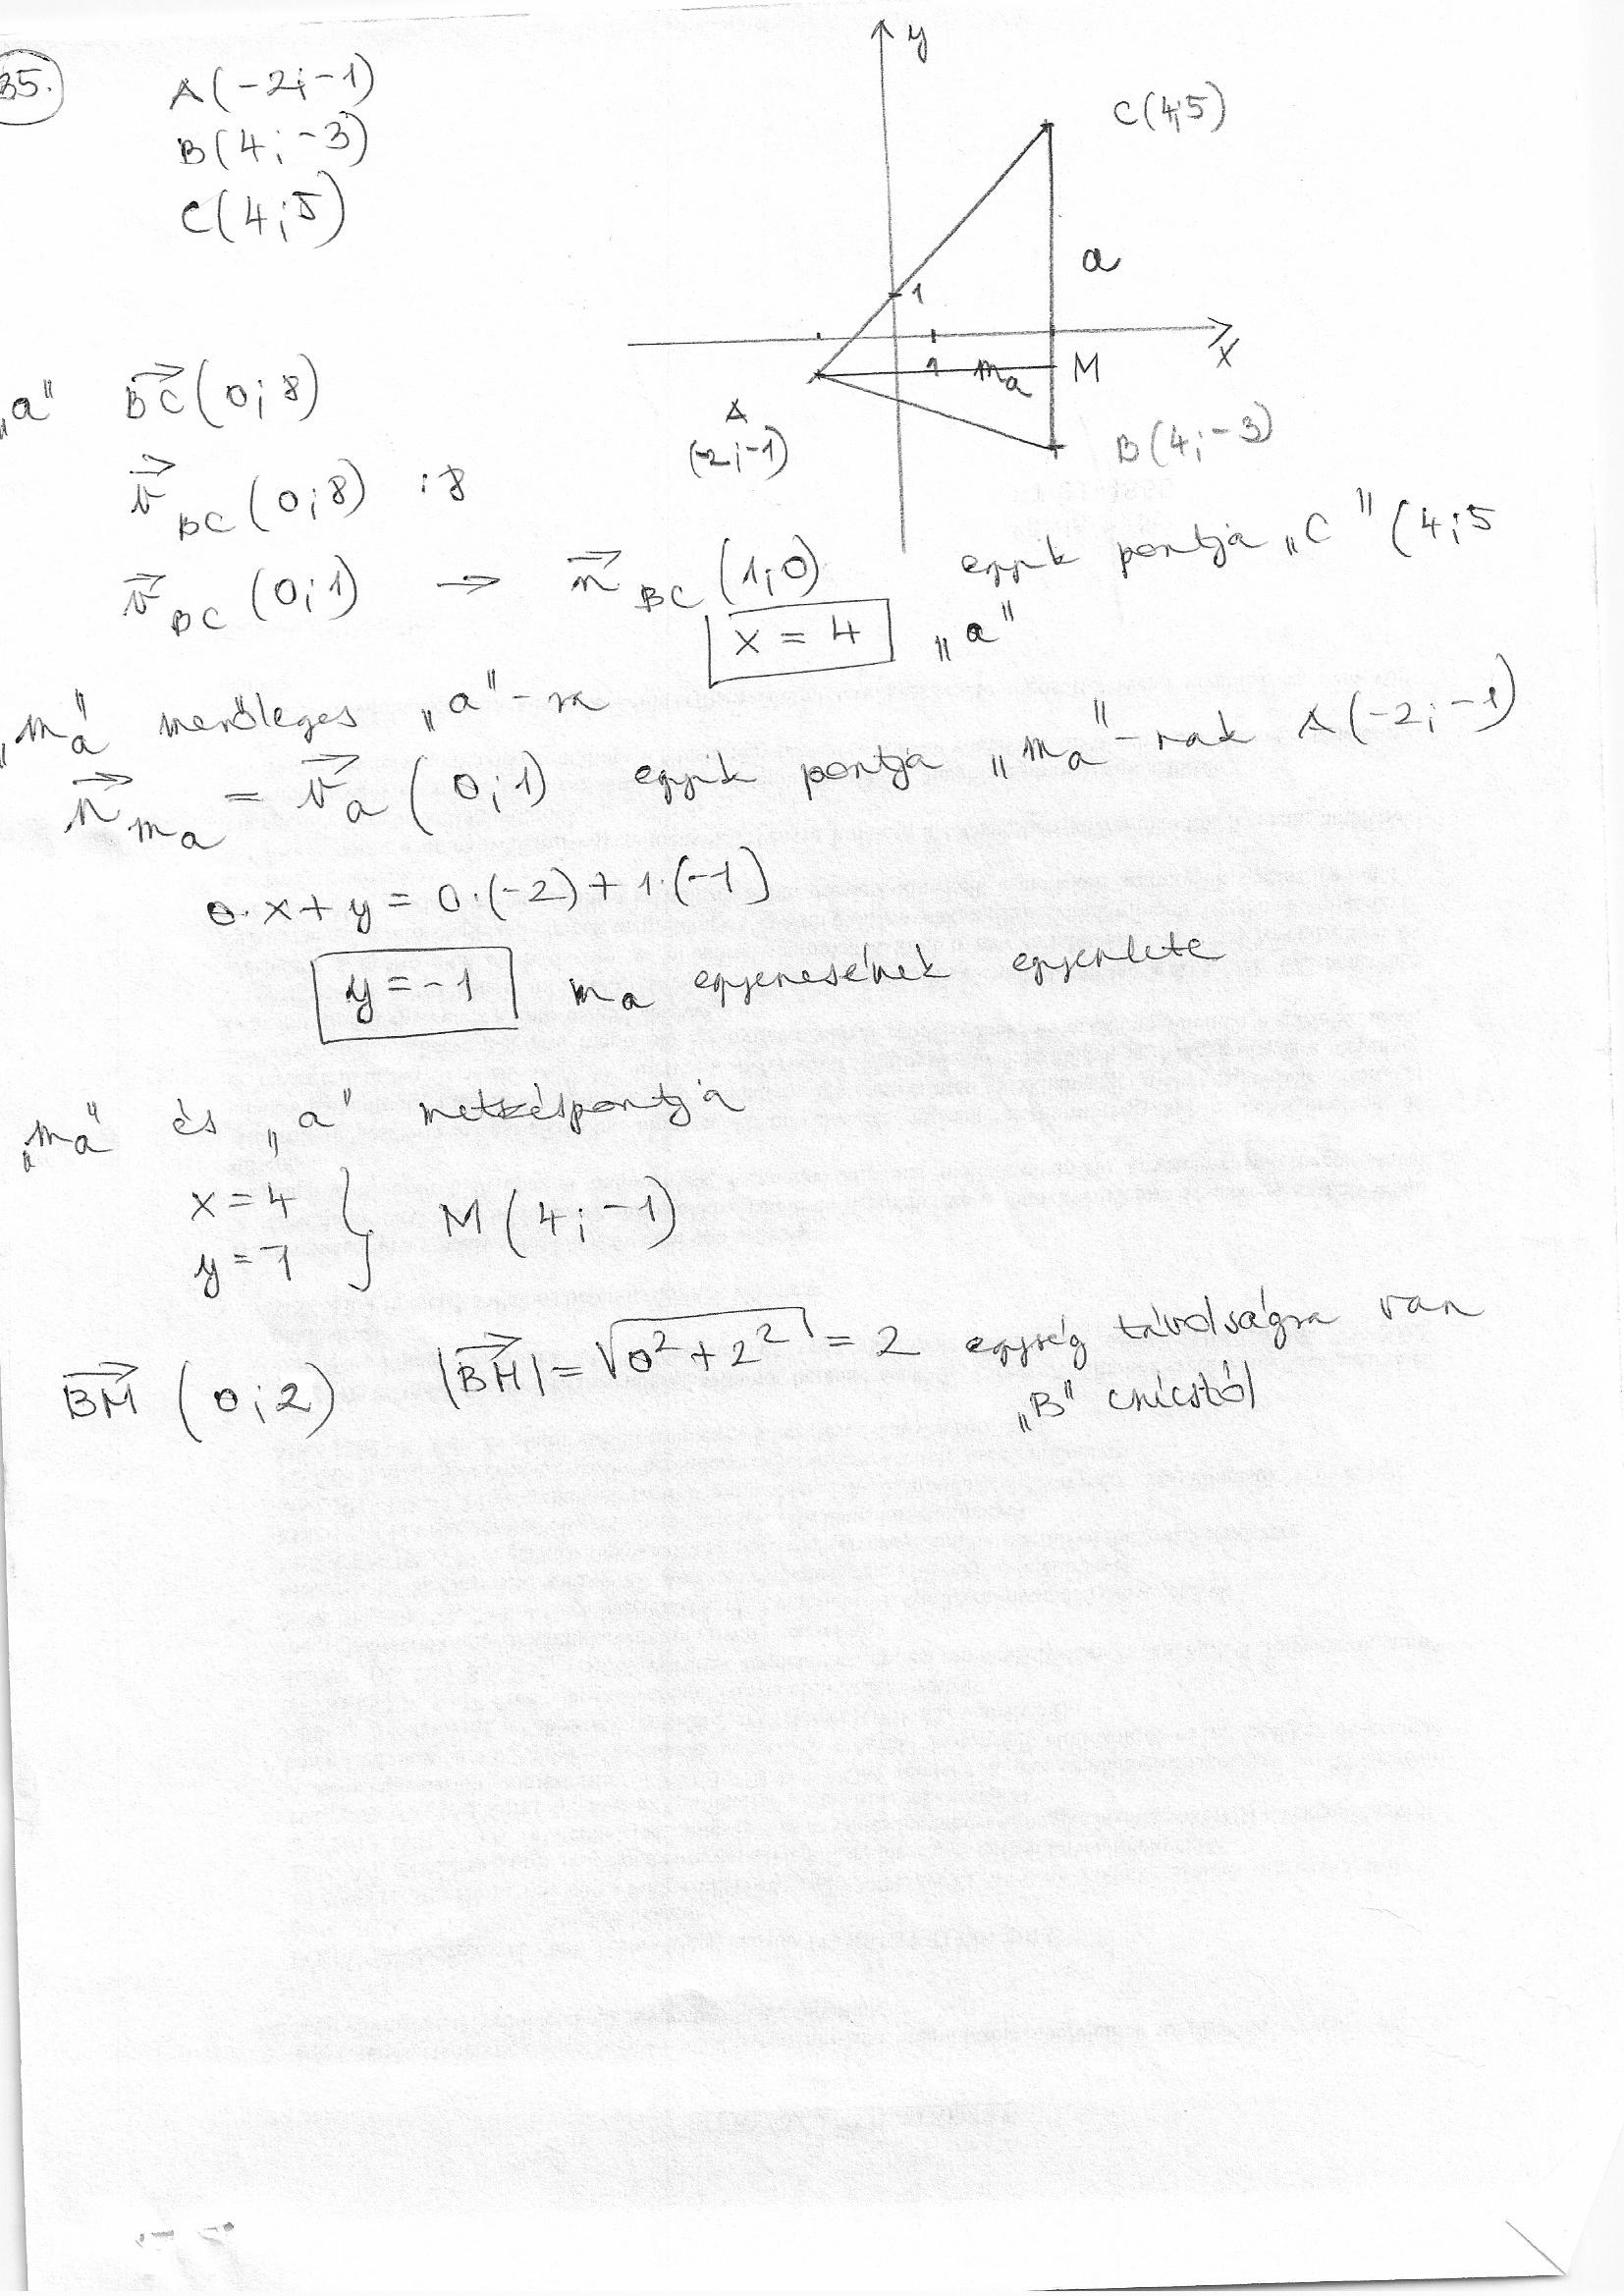 35.
A(-2;-1)
B(4;-3)
C(4;5)
y
C(4;5)
a
1
x
1
m_a
M
A
(-2;-1)
B(4;-3)
„a" B⃗C(0;8)
v⃗_BC (0;8) :8
v⃗_BC (0;1) → n⃗_BC (1;0) egyik pontja „C" (4;5
x = 4 „a"
„m_a" merőleges „a"-ra
n⃗_m_a = v⃗_a (0;1) egyik pontja „m_a"-nak A(-2;-1)
0·x+y = 0·(-2)+1·(-1)
y = -1 m_a egyenesének egyenlete
„m_a" és „a" metszéspontja
x = 4 } M(4;-1)
y = -1
B⃗M (0;2) |B⃗M| = √(0²+2²) = 2 egység távolságra van
„B" csúcstól